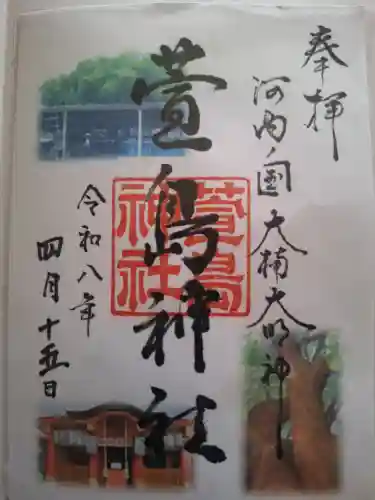 奉拝
河内ノ国大楠大明神
萱島神社
萱島
神社
令和八年
四月十五日